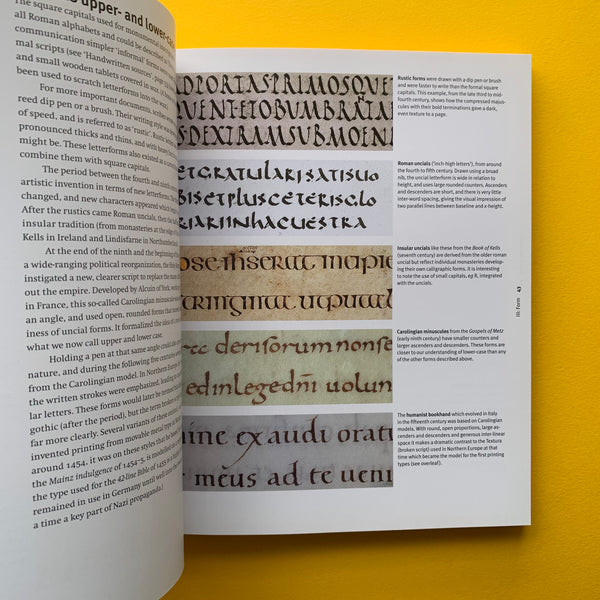 upper- and lower-cas
The square capitals used for monumental inscr
all Roman alphabets and could be described as
communication simpler 'informal' forms
mal scripts (see 'Handwritten sources', page
and small wooden tablets covered in wax. (A
been used to scratch letterforms into the wax.)
For more important documents, scribes
reed dip pen or a brush. Their writing style was
of speed, and is referred to as 'rustic'. Rustic
pronounced thicks and thins, and with
might be. These letterforms also existed as
combine them with square capitals.
The period between the fourth and ninth
artistic invention in terms of new letterforms.
changed, and new characters appeared which
After the rustics came Roman uncials, then the
insular tradition (from monasteries at the
Kells in Ireland and Lindisfarne in Northumberland
At the end of the ninth and the beginning of
a wide-ranging political reorganization, the
instigated a new, clearer script to replace the
out the empire. Developed by Alcuin of York,
in France, this so-called Carolingian minuscule
an angle, and used open, rounded forms
iness of uncial forms. It formalized the idea of
what we now call upper and lower case.
Holding a pen at that same angle could also
nature, and during the following five centuries
from the Carolingian model. In Northern Europe
the written strokes were emphasized, leading
lar letters. These forms would later be termed
gothic (after the period), but the term
far more clearly. Several variants of these
invented printing from movable metal type in
around 1454, it was on these styles that he
the Mainz indulgence of 1454–5, is modelled
the type used for the 42-line bible of 1455 is a
remained in use in Germany until well into the
a time a key part of Nazi propaganda.)
DPORTAS·PRIMOSQUE
QUENT·ETOBUMBRATA
SDEXTRAMSUBMOEN
ETGRATULARISATISUO
BISETPLUSCETERISGLO
RIARIINHACUESTRA
ose inserat
derisorum nonse
edinlegedni uolun
ine exaudi oratı
meus ad te veni
Rustic forms were drawn with a dip pen or brush
and were faster to write than the formal square
capitals. This example, from the late third to mid-
fourth century, shows how the compressed majus-
cules with their bold terminations gave a dark,
even texture to a page.
Roman uncials ('inch-high letters'), from around
the fourth to fifth century. Drawn using a broad
nib, the uncial letterform is wide in relation to
height, and uses large rounded counters. Ascenders
and descenders are short, and there is very little
inter-word spacing, giving the visual impression
of two parallel lines between baseline and x-height.
Insular uncials like these from the Book of Kells
(seventh century) are derived from the older roman
uncial but reflect individual monasteries develop-
ing their own calligraphic forms. It is interesting
to note the use of small capitals, eg R, integrated
with the uncials.
III: form 43
Carolingian minuscules from the Gospels of Metz
(early ninth century) have smaller counters and
larger ascenders and descenders. These forms are
closer to our understanding of lower-case than any
of the other forms described above.
The humanist bookhand which evolved in Italy
in the fifteenth century was based on Carolingian
models. With round, open proportions, large as-
cenders and descenders and generous inter-linear
space it makes a dramatic contrast to the Textura
(broken script) used in Northern Europe at that
time which became the model for the first printing
types (see overleaf).